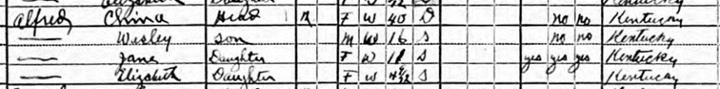 Alfred China Head R F W 40 D no no Kentucky
— Wesley Son M W 16 S no no Kentucky
— Jane Daughter F W 11 S yes yes yes Kentucky
— Elizabeth Daughter F W 4 S Kentucky